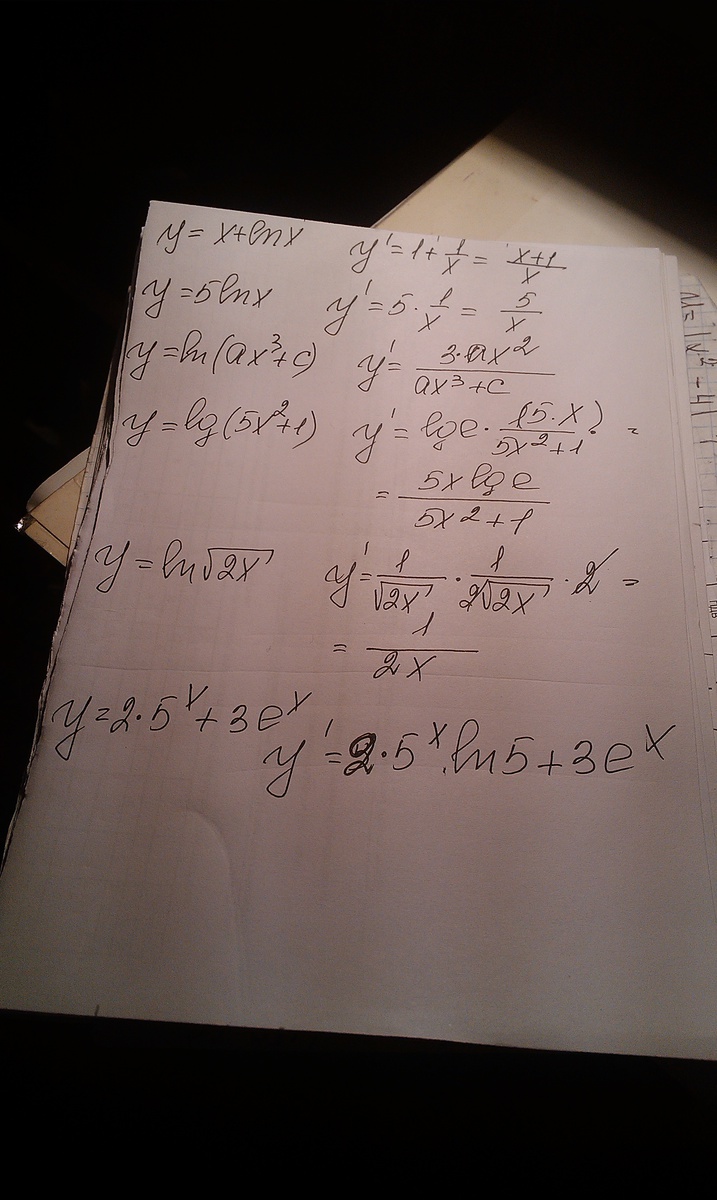 y = x+lnx   y' = 1+ 1/x = (x+1)/x
y = 5lnx   y' = 5 · 1/x = 5/x
y = ln(ax³+c)   y' = (3·ax²)/(ax³+c)
y = lg(5x²+1)   y' = lge · (5·x)/(5x²+1) =
= (5x lg e)/(5x²+1)
y = ln√(2x)   y' = 1/√(2x) · 1/(2√(2x)) · 2 =
= 1/(2x)
y = 2·5^x + 3e^x
y' = 2·5^x · ln5 + 3e^x